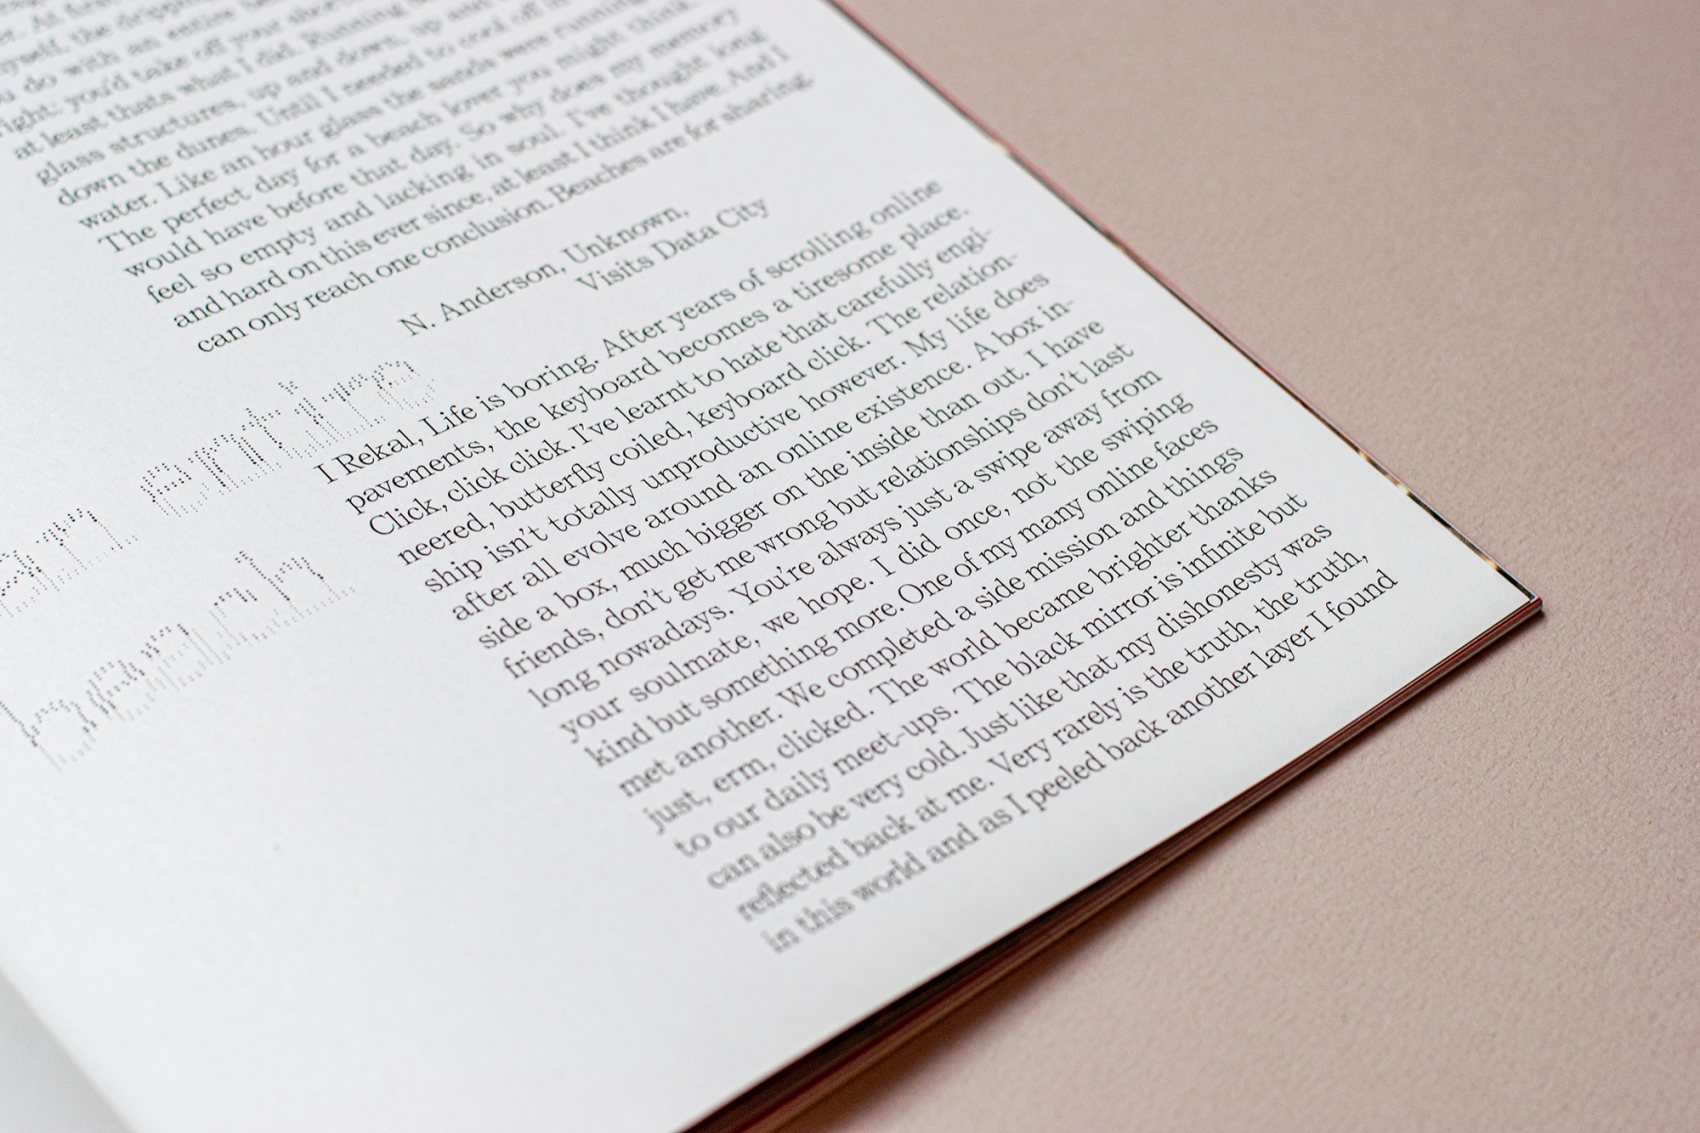 do with an entire
right: you'd take off your
at least thats what I did. Running
glass structures, up and down, up and
down the dunes. Until I needed to cool off in
water. Like an hour glass the sands were running
The perfect day for a beach lover you might think.
would have before that day. So why does my memory
feel so empty and lacking in soul. I've thought long
and hard on this ever since, at least I think I have. And I
can only reach one conclusion. Beaches are for sharing.
N. Anderson, Unknown,
Visits Data City
an entire
beach
I Rekal, Life is boring. After years of scrolling online
pavements, the keyboard becomes a tiresome place.
Click, click click. I've learnt to hate that carefully engi-
neered, butterfly coiled, keyboard click. The relation-
ship isn't totally unproductive however. My life does
after all evolve around an online existence. A box in-
side a box, much bigger on the inside than out. I have
friends, don't get me wrong but relationships don't last
long nowadays. You're always just a swipe away from
your soulmate, we hope. I did once, not the swiping
kind but something more. One of my many online faces
met another. We completed a side mission and things
just, erm, clicked. The world became brighter thanks
to our daily meet-ups. The black mirror is infinite but
can also be very cold. Just like that my dishonesty was
reflected back at me. Very rarely is the truth, the truth,
in this world and as I peeled back another layer I found